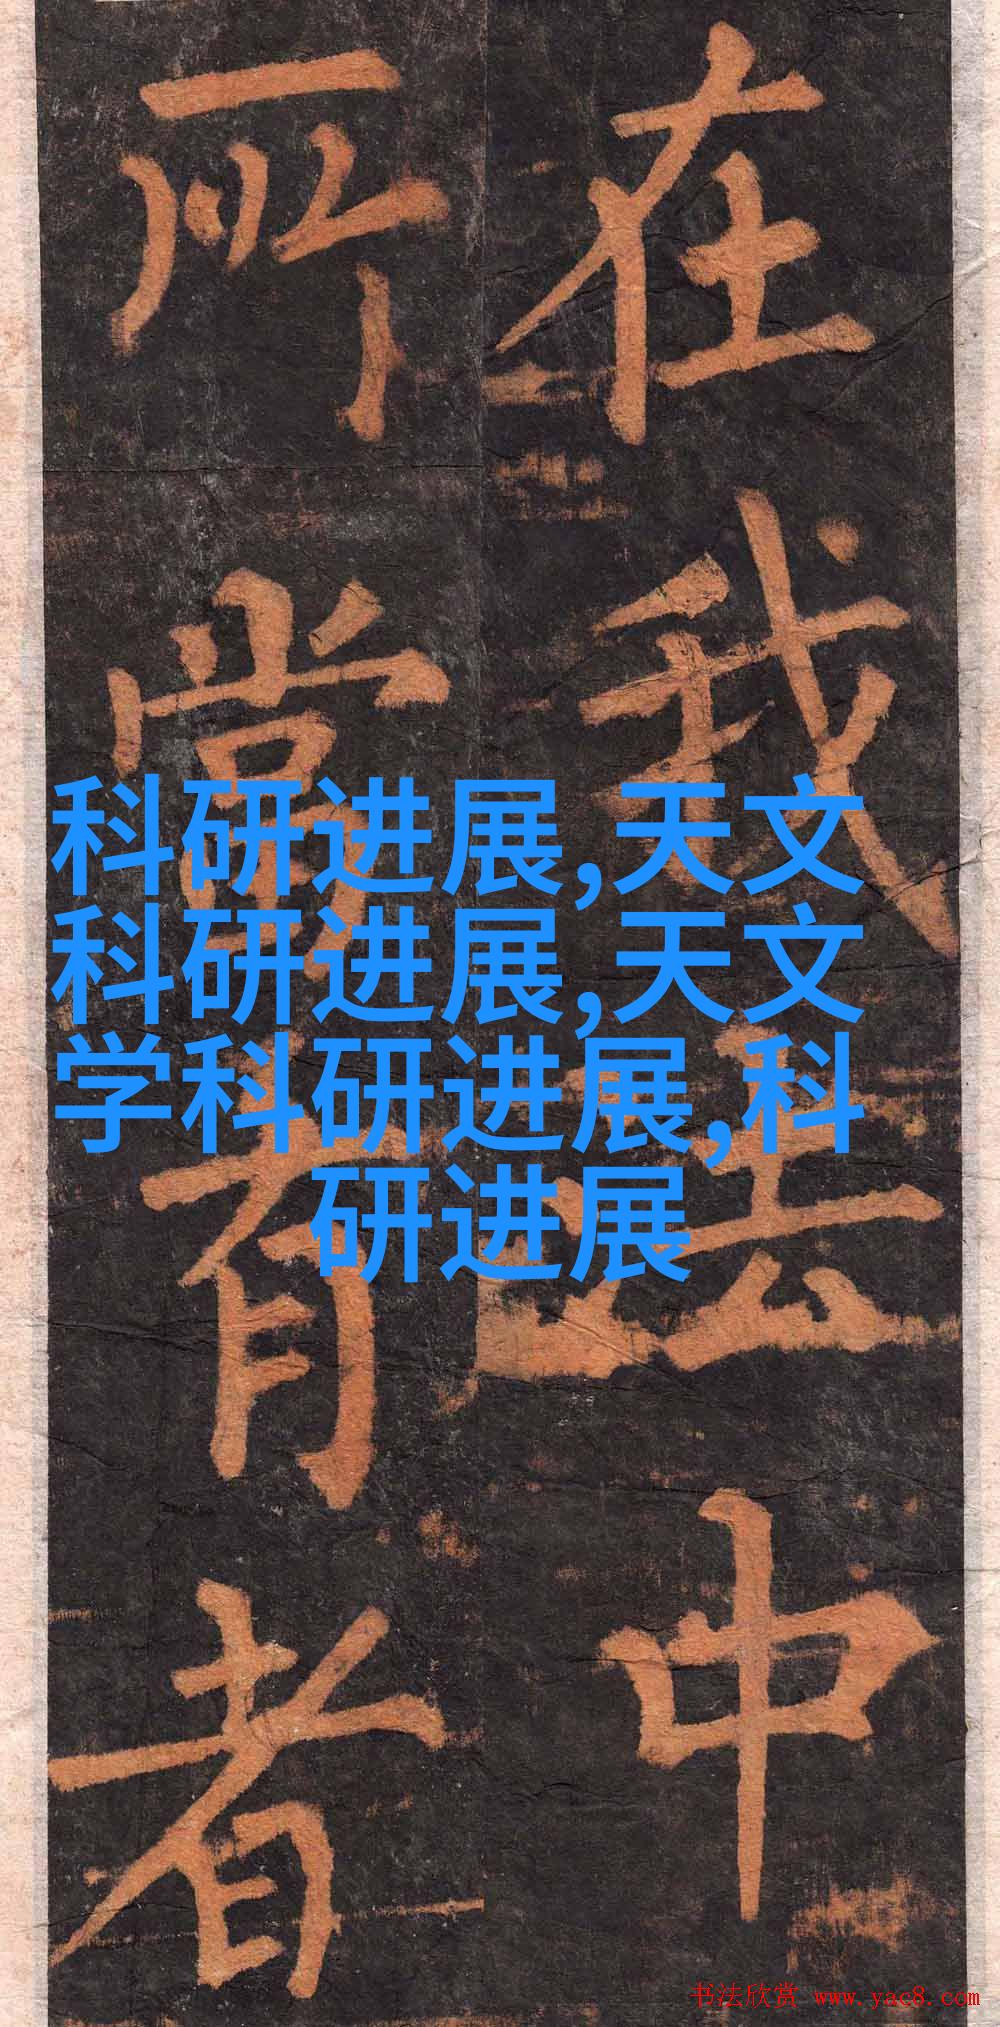 在我法中
所常有者
科研进展,天文
科研进展,天文
学科研进展,科
研进展
书法欣赏 www.yac8.com